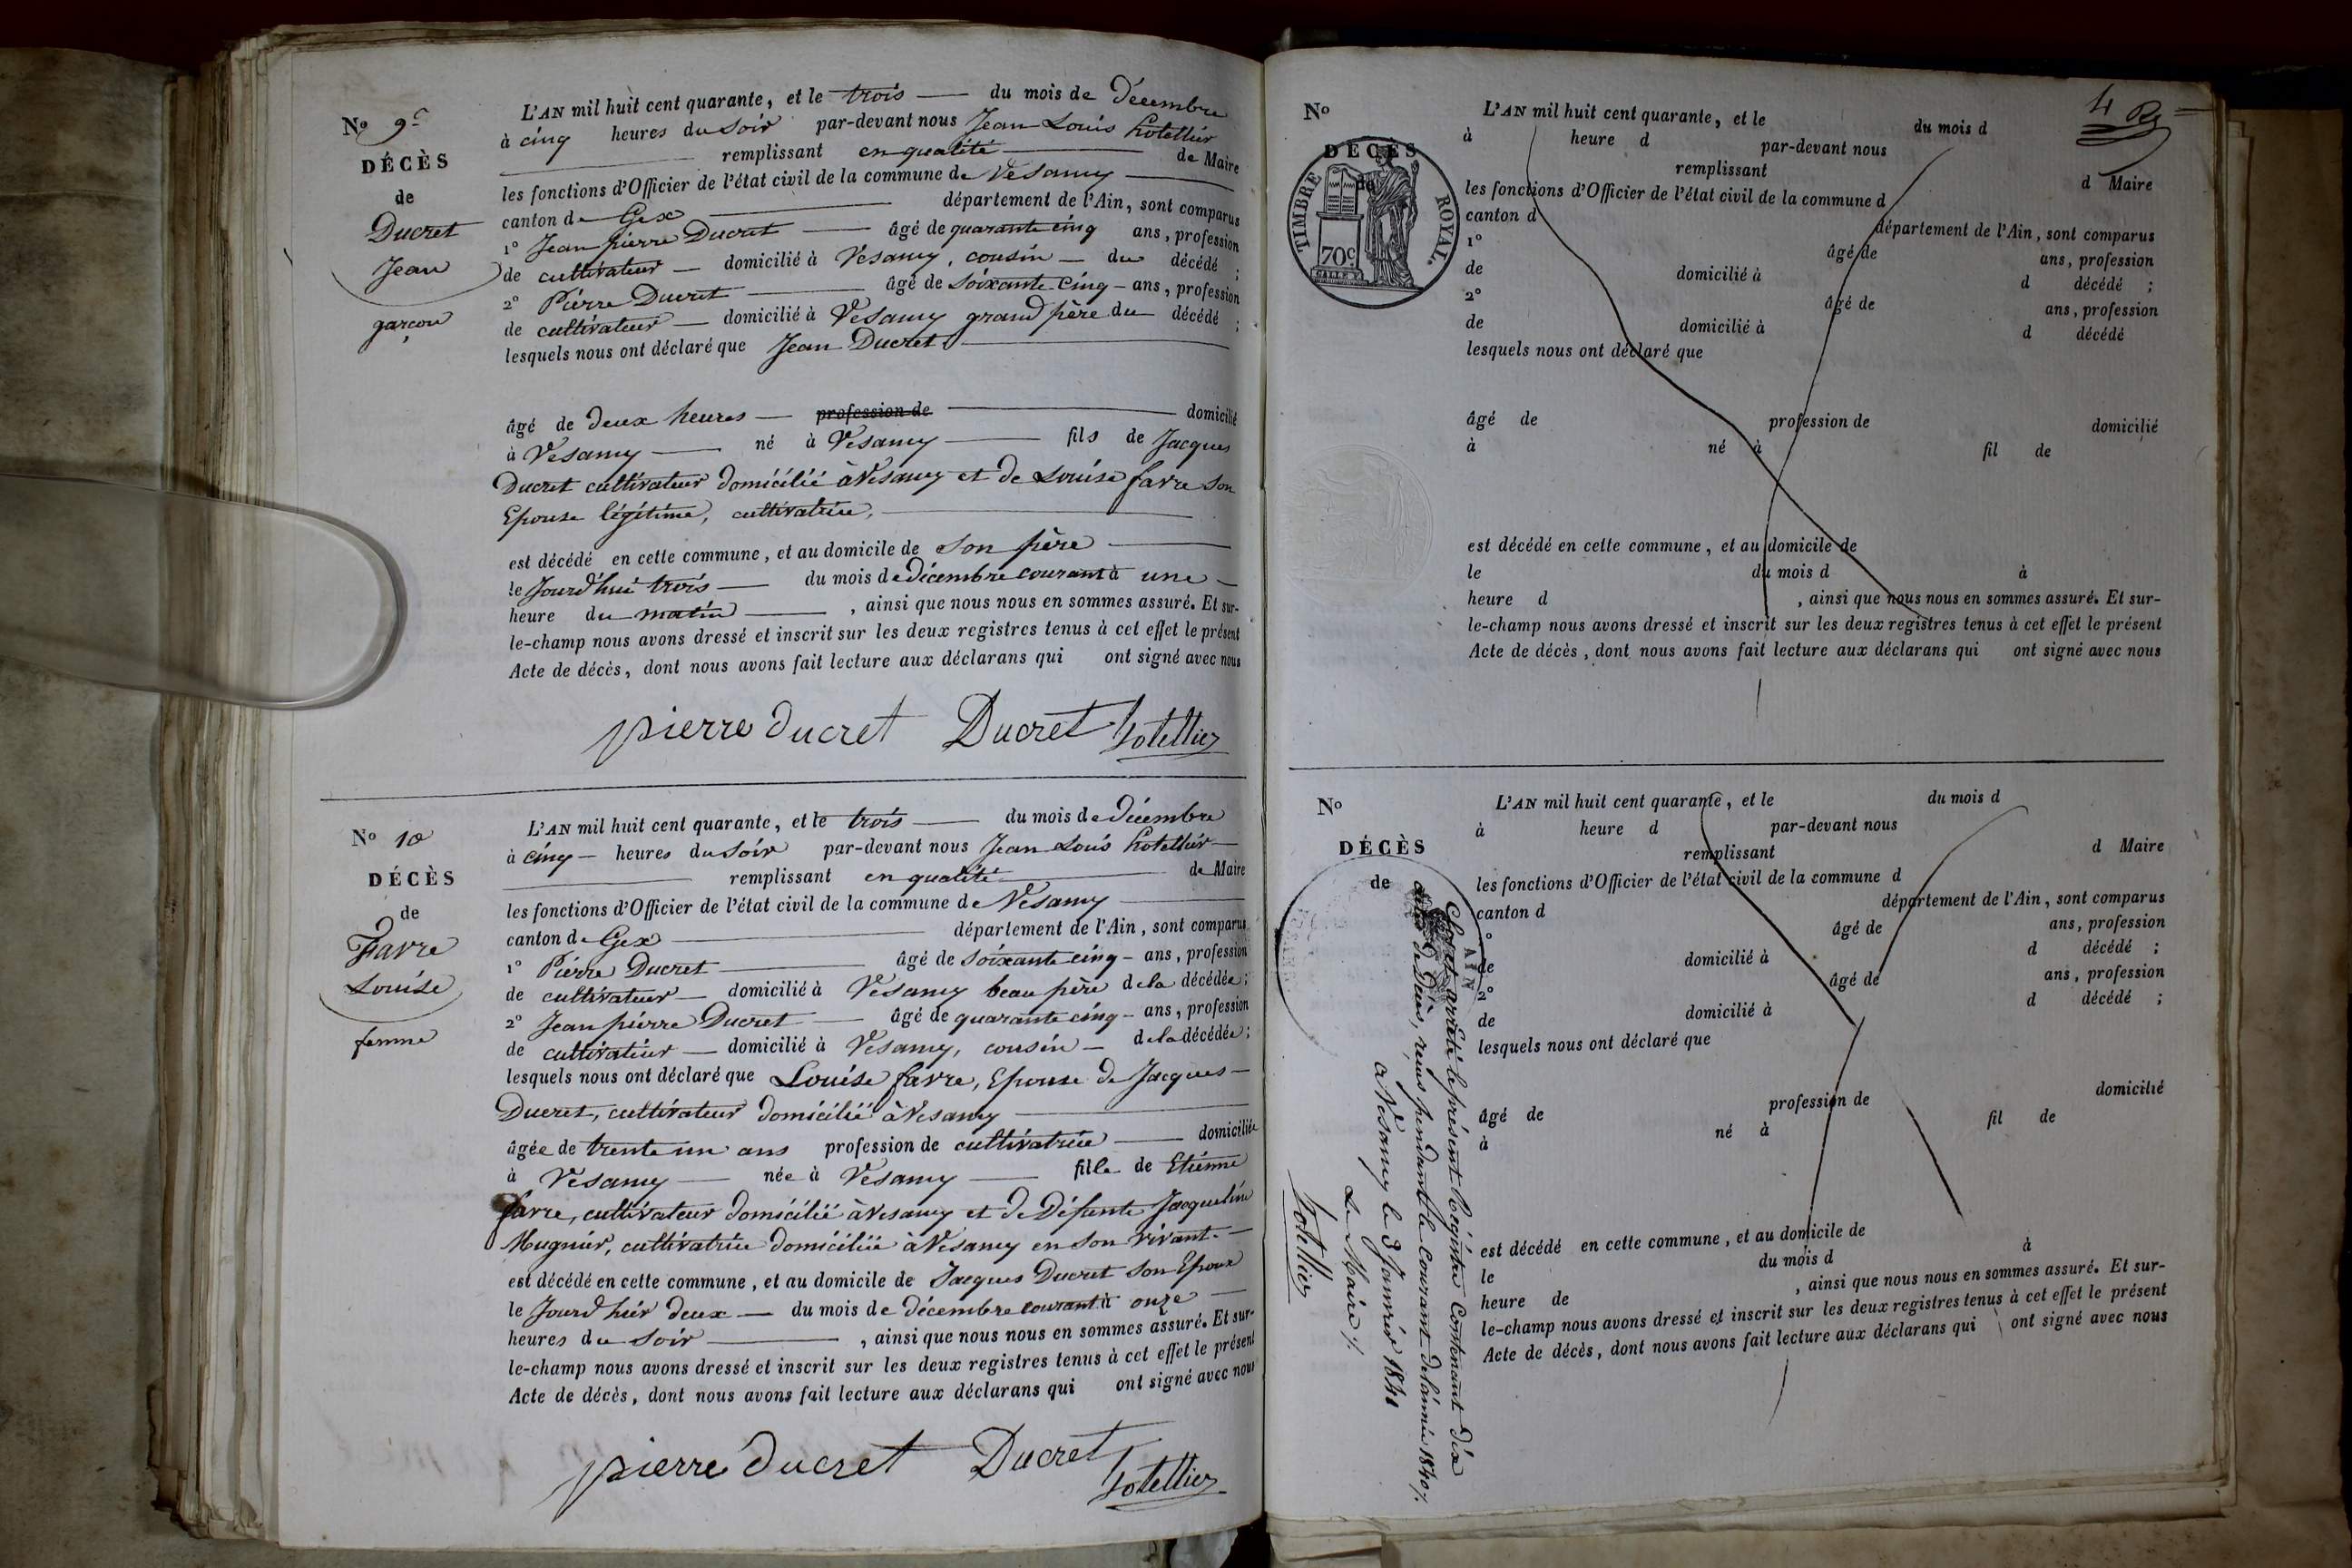 Nº 9ᵉ
DÉCÈS
de
Ducret
Jean
garçon
L'AN mil huit cent quarante, et le trois — du mois de décembre
à cinq heures du soir par-devant nous Jean Louis hotellier
remplissant en qualité — de Maire
les fonctions d'Officier de l'état civil de la commune de Vesancy —
canton de Gex — département de l'Ain, sont comparus
1º Jean pierre Ducret — âgé de quarante cinq ans, profession
de cultivateur — domicilié à Vesancy, cousin — du décédé ;
2º Pierre Ducret — âgé de soixante cinq — ans, profession
de cultivateur — domicilié à Vesancy grand père du décédé ;
lesquels nous ont déclaré que Jean Ducret —
âgé de deux heures — profession de — domicilié
à Vesancy — né à Vesancy — fils de Jacques
Ducret cultivateur domicilié à Vesancy et de Louise favre son
Epouse légitime, cultivatrice, —
est décédé en cette commune, et au domicile de son père —
le Jourd'hui trois — du mois de décembre courant à une —
heure du matin — , ainsi que nous nous en sommes assuré. Et sur-
le-champ nous avons dressé et inscrit sur les deux registres tenus à cet effet le présent
Acte de décès, dont nous avons fait lecture aux déclarans qui ont signé avec nous
pierre ducret Ducret hotellier
Nº 10
DÉCÈS
de
Favre
Louise
femme
L'AN mil huit cent quarante, et le trois — du mois de décembre
à cinq — heures du soir par-devant nous Jean Louis hotellier —
remplissant en qualité — de Maire
les fonctions d'Officier de l'état civil de la commune de Vesancy —
canton de Gex — département de l'Ain, sont comparus
1º Pierre Ducret — âgé de soixante cinq — ans, profession
de cultivateur — domicilié à Vesancy beau père de la décédée ;
2º Jean pierre Ducret — âgé de quarante cinq — ans, profession
de cultivateur — domicilié à Vesancy, cousin — de la décédée ;
lesquels nous ont déclaré que Louise favre, Epouse de Jacques —
Ducret, cultivateur domicilié à Vesancy —
âgée de trente un ans profession de cultivatrice — domiciliée
à Vesancy — née à Vesancy — fille de Etienne
favre, cultivateur domicilié à Vesancy et de Défunte Jacqueline
Mugnier, cultivatrice domiciliée à Vesancy en son vivant. —
est décédé en cette commune, et au domicile de Jacques Ducret son Epoux
le Jourd'hier deux — du mois de décembre courant à onze —
heures du soir — , ainsi que nous nous en sommes assuré. Et sur-
le-champ nous avons dressé et inscrit sur les deux registres tenus à cet effet le présent
Acte de décès, dont nous avons fait lecture aux déclarans qui ont signé avec nous
pierre ducret Ducret
hotellier
4
Nº
DÉCÈS
de
TIMBRE ROYAL.
70c.
L'AN mil huit cent quarante, et le du mois d
à heure d par-devant nous
remplissant d Maire
les fonctions d'Officier de l'état civil de la commune d
canton d département de l'Ain, sont comparus
1º âgé de ans, profession
de domicilié à d décédé ;
2º âgé de ans, profession
de domicilié à d décédé
lesquels nous ont déclaré que
âgé de profession de domicilié
à né à fil de
est décédé en cette commune, et au domicile de
le du mois d à
heure d , ainsi que nous nous en sommes assuré. Et sur-
le-champ nous avons dressé et inscrit sur les deux registres tenus à cet effet le présent
Acte de décès, dont nous avons fait lecture aux déclarans qui ont signé avec nous
Nº
DÉCÈS
de
AIN
L'AN mil huit cent quarante, et le du mois d
à heure d par-devant nous
remplissant d Maire
les fonctions d'Officier de l'état civil de la commune d
canton d département de l'Ain, sont comparus
º âgé de ans, profession
de domicilié à d décédé ;
2º âgé de ans, profession
de domicilié à d décédé ;
lesquels nous ont déclaré que
âgé de profession de domicilié
à né à fil de
est décédé en cette commune, et au domicile de
le du mois d à
heure de , ainsi que nous nous en sommes assuré. Et sur-
le-champ nous avons dressé et inscrit sur les deux registres tenus à cet effet le présent
Acte de décès, dont nous avons fait lecture aux déclarans qui ont signé avec nous
arrêté le présent Régistre Contenant dix
actes de Décès, reçus pendant le courant de l'année 1840 %.
à Vesancy le 3 Janvier 1841
Le Maire %.
hotellier